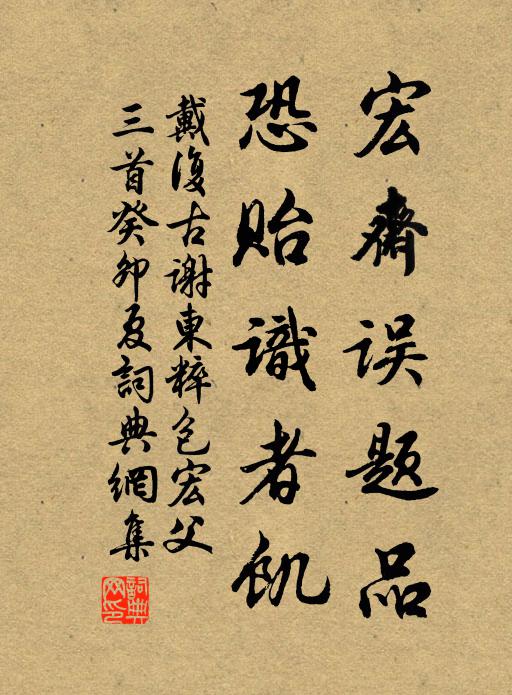 宏齋誤題品
恐貽識者飢
戴復古謝東粹包宏父
三首癸卯夏詞典網集
詞典网印